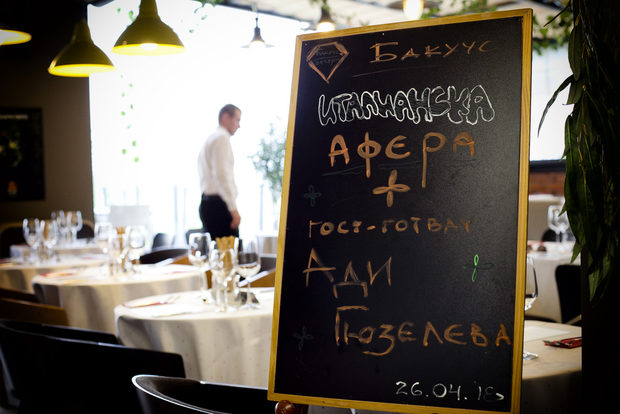 Бакуус
ИТАЛИАНСКА
АФЕРА
+
ГОСТ-ГОТВАЧ
АДИ
ГЮЗЕЛЕВА
26.04.18